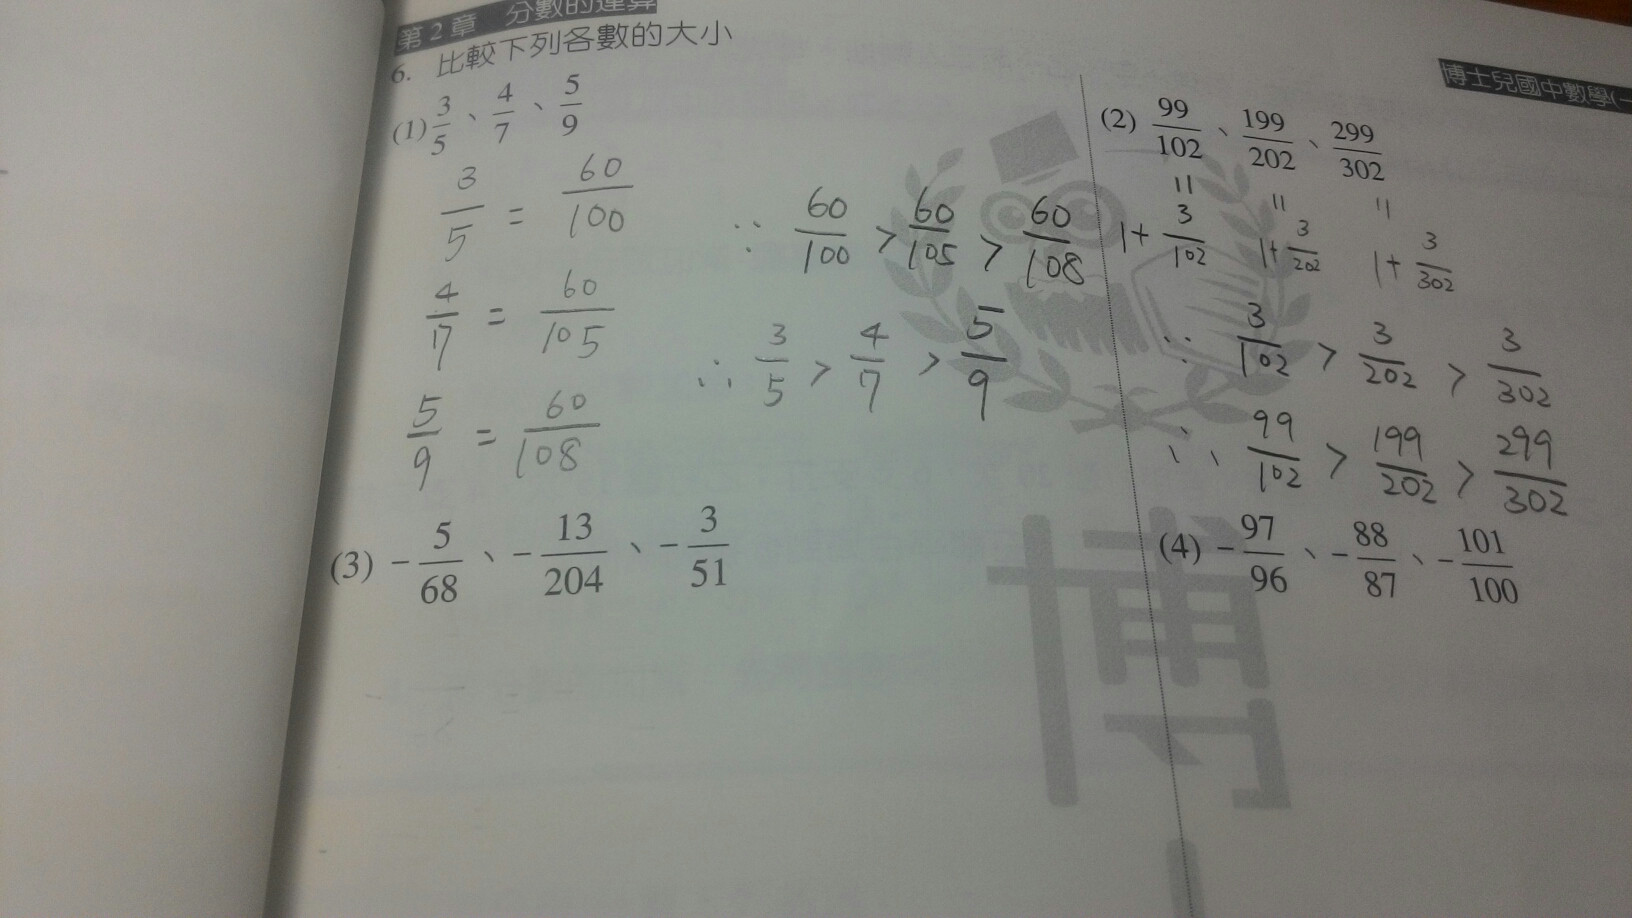 第2章 分數的運算
博士兒國中數學(一
6. 比較下列各數的大小
(1) 3/5、4/7、5/9
3/5 = 60/100
4/7 = 60/105
5/9 = 60/108
∵ 60/100 > 60/105 > 60/108
∴ 3/5 > 4/7 > 5/9
(2) 99/102、199/202、299/302
= = =
1+3/102 1+3/202 1+3/302
∵ 3/102 > 3/202 > 3/302
∴ 99/102 > 199/202 > 299/302
(3) -5/68、-13/204、-3/51
(4) -97/96、-88/87、-101/100
博士